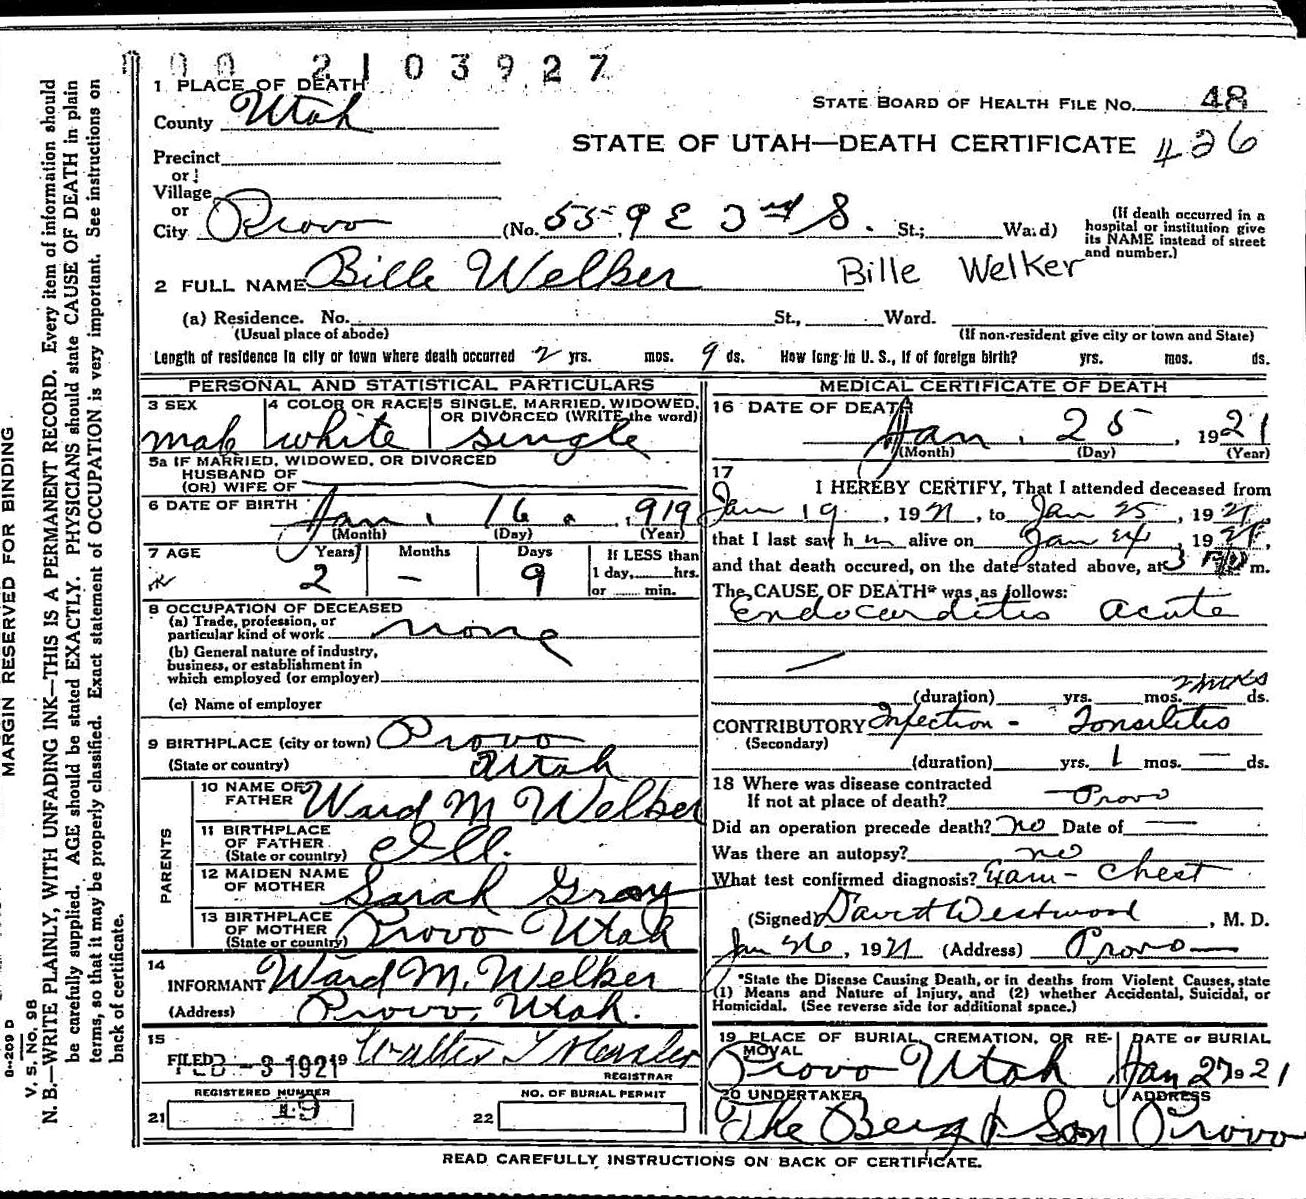 2103927
1 PLACE OF DEATH
County Utah
STATE BOARD OF HEALTH FILE NO. 48
STATE OF UTAH—DEATH CERTIFICATE 426
Precinct
or
Village
or
City Provo (No. 559 E 3rd S. St.; Ward)
(If death occurred in a hospital or institution give its NAME instead of street and number.)
2 FULL NAME Bille Welker Bille Welker
(a) Residence. No. St., Ward.
(Usual place of abode) (If non-resident give city or town and State)
Length of residence in city or town where death occurred 2 yrs. mos. 9 ds. How long in U. S., if of foreign birth? yrs. mos. ds.
PERSONAL AND STATISTICAL PARTICULARS
3 SEX 4 COLOR OR RACE 5 SINGLE, MARRIED, WIDOWED, OR DIVORCED (WRITE the word)
male white single
5a IF MARRIED, WIDOWED, OR DIVORCED
HUSBAND OF
(OR) WIFE OF
6 DATE OF BIRTH Jan. 16. 1919
(Month) (Day) (Year)
7 AGE Years Months Days If LESS than
2 — 9 1 day, hrs.
or min.
8 OCCUPATION OF DECEASED
(a) Trade, profession, or
particular kind of work none
(b) General nature of industry,
business, or establishment in
which employed (or employer)
(c) Name of employer
9 BIRTHPLACE (city or town) Provo
(State or country) Utah
PARENTS
10 NAME OF
FATHER Ward M Welker
11 BIRTHPLACE
OF FATHER
(State or country) Ill.
12 MAIDEN NAME
OF MOTHER Sarah Gray
13 BIRTHPLACE
OF MOTHER
(State or country) Provo Utah
14
INFORMANT Ward M. Welker
(Address) Provo, Utah.
15
FILED FEB -3 1921 19 Walter T
REGISTRAR
REGISTERED NUMBER NO. OF BURIAL PERMIT
21 49 22
MEDICAL CERTIFICATE OF DEATH
16 DATE OF DEATH
Jan. 25, 1921
(Month) (Day) (Year)
17
I HEREBY CERTIFY, That I attended deceased from
Jan 19, 1921, to Jan 25, 1921,
that I last saw him alive on Jan 24, 1921,
and that death occured, on the date stated above, at 3 m.
The CAUSE OF DEATH* was as follows:
Endocarditis acute
(duration) yrs. mos. 2 wks ds.
CONTRIBUTORY Infection - Tonsilitis
(Secondary)
(duration) yrs. 1 mos. — ds.
18 Where was disease contracted
If not at place of death? Provo
Did an operation precede death? no Date of —
Was there an autopsy? no
What test confirmed diagnosis? Exam - Chest
(Signed) David Westwood, M. D.
Jan 26, 1921 (Address) Provo
*State the Disease Causing Death, or in deaths from Violent Causes, state
(1) Means and Nature of Injury, and (2) whether Accidental, Suicidal, or
Homicidal. (See reverse side for additional space.)
19 PLACE OF BURIAL, CREMATION, OR RE-
MOVAL
DATE OF BURIAL
Provo Utah Jan 27 1921
20 UNDERTAKER ADDRESS
The Berg & Son Provo
READ CAREFULLY INSTRUCTIONS ON BACK OF CERTIFICATE.
MARGIN RESERVED FOR BINDING
V. S. No. 98
N. B.—WRITE PLAINLY, WITH UNFADING INK—THIS IS A PERMANENT RECORD. Every item of information should
be carefully supplied. AGE should be stated EXACTLY. PHYSICIANS should state CAUSE OF DEATH in plain
terms, so that it may be properly classified. Exact statement of OCCUPATION is very important. See instructions on
back of certificate.